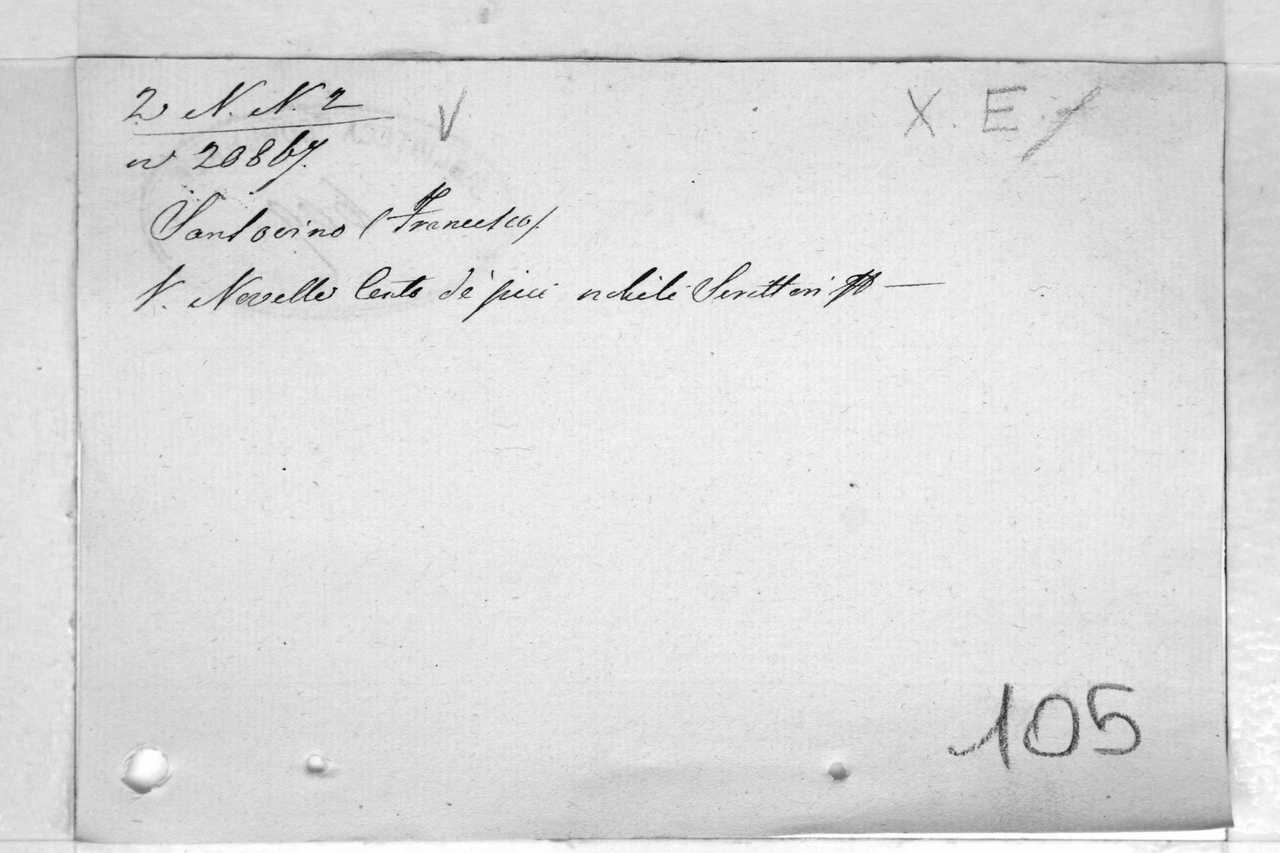 2 N. N. 2
V
X. E. f
n 20867.
Sansovino (Francesco).
V. Novelle Cento de' più nobili Scrittori &&
105